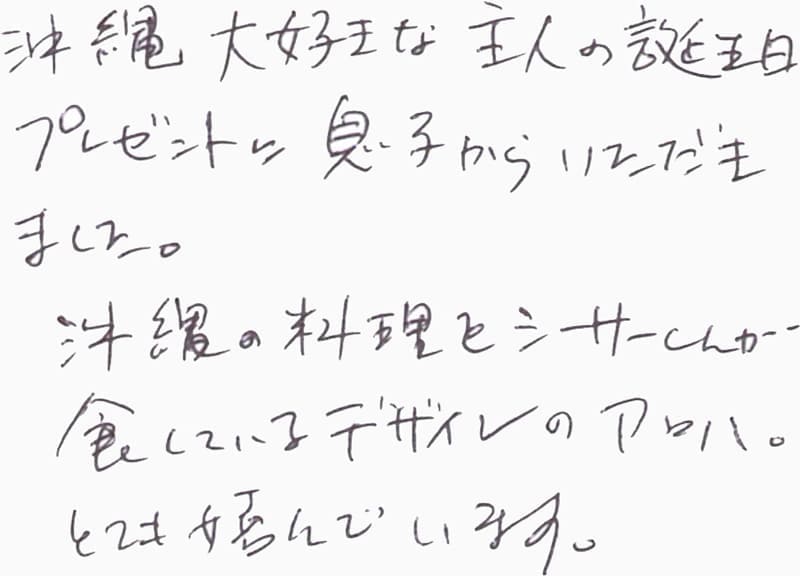 沖縄大好きな主人の誕生日
プレゼントに息子からいただき
ました。
沖縄の料理をシーサーくんが
食しているデザインのアロハ。
とても喜んでいます。